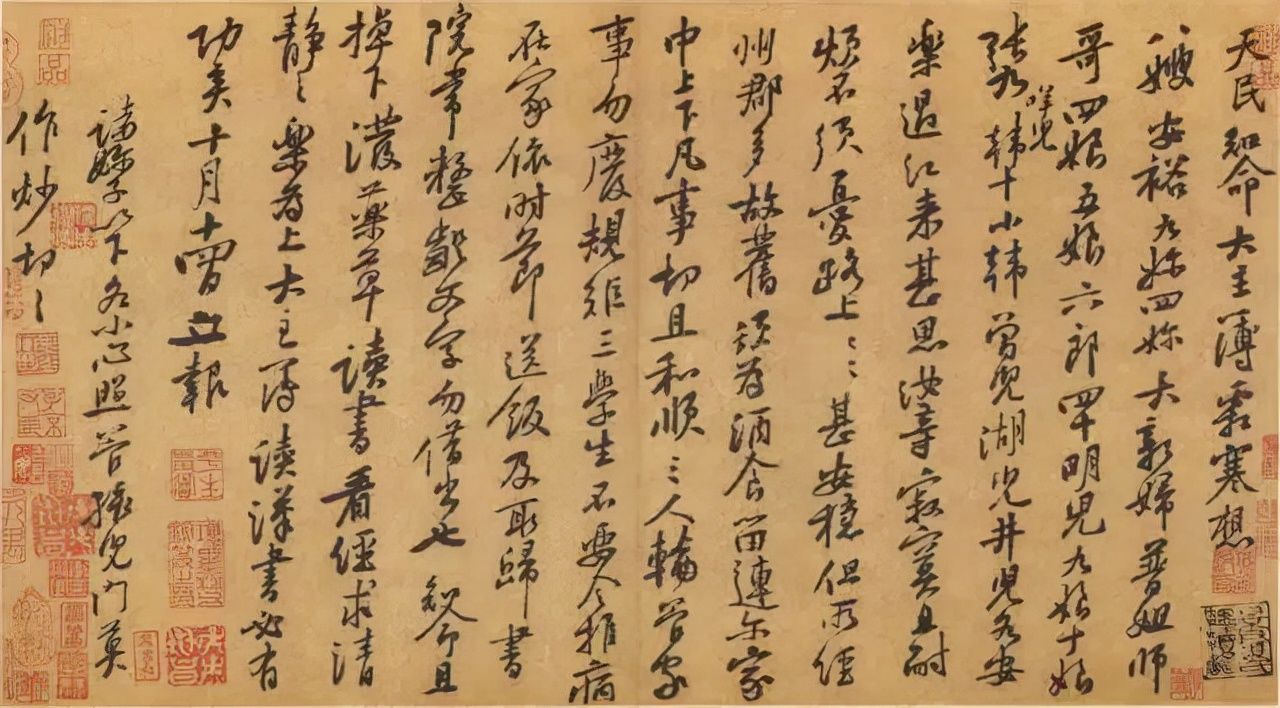 天民知命大主簿霜寒想
八嫂安裕九妳四妳大新婦普姐師
哥四娘五娘六郎四十明兒九娘十娘
張九咩兒韓十小韓曾兒湖兒井兒各安
樂過江來甚思汝等寂寞且耐
煩不須憂路上〻〻甚安穩但所經
州郡多故舊須為酒食留連尔家
中上下凡事切且和順三人輪管家
事勿廢規矩三學生不要令推病
在家依時節送飯及取歸書
院常整齪文字勿借出也知命且
掉下潑藥草讀書看經求清
靜之樂為上大主簿讀漢書必有
功矣十月十四日立報
諸妳子以下各小心照管孩兒門莫
作炒切〻